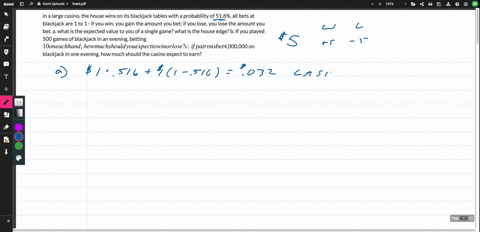 Kami Kami Uploads > lined.pdf
In a large casino, the house wins on its blackjack tables with a probability of 51.6%. all bets at
blackjack are 1 to 1 - if you win, you gain the amount you bet; if you lose, you lose the amount you
bet. a. what is the expected value to you of a single game? what is the house edge? b. if you played
500 games of blackjack in an evening, betting
10meachhand,howmuchshouldyouexpecttowinorlose?c. ifpatronsbet4,000,000 on
blackjack in one evening, how much should the casino expect to earn?
W L
$5 +5 -5
a) $1 · .516 + $ (1 - .516) = $.032 CASI